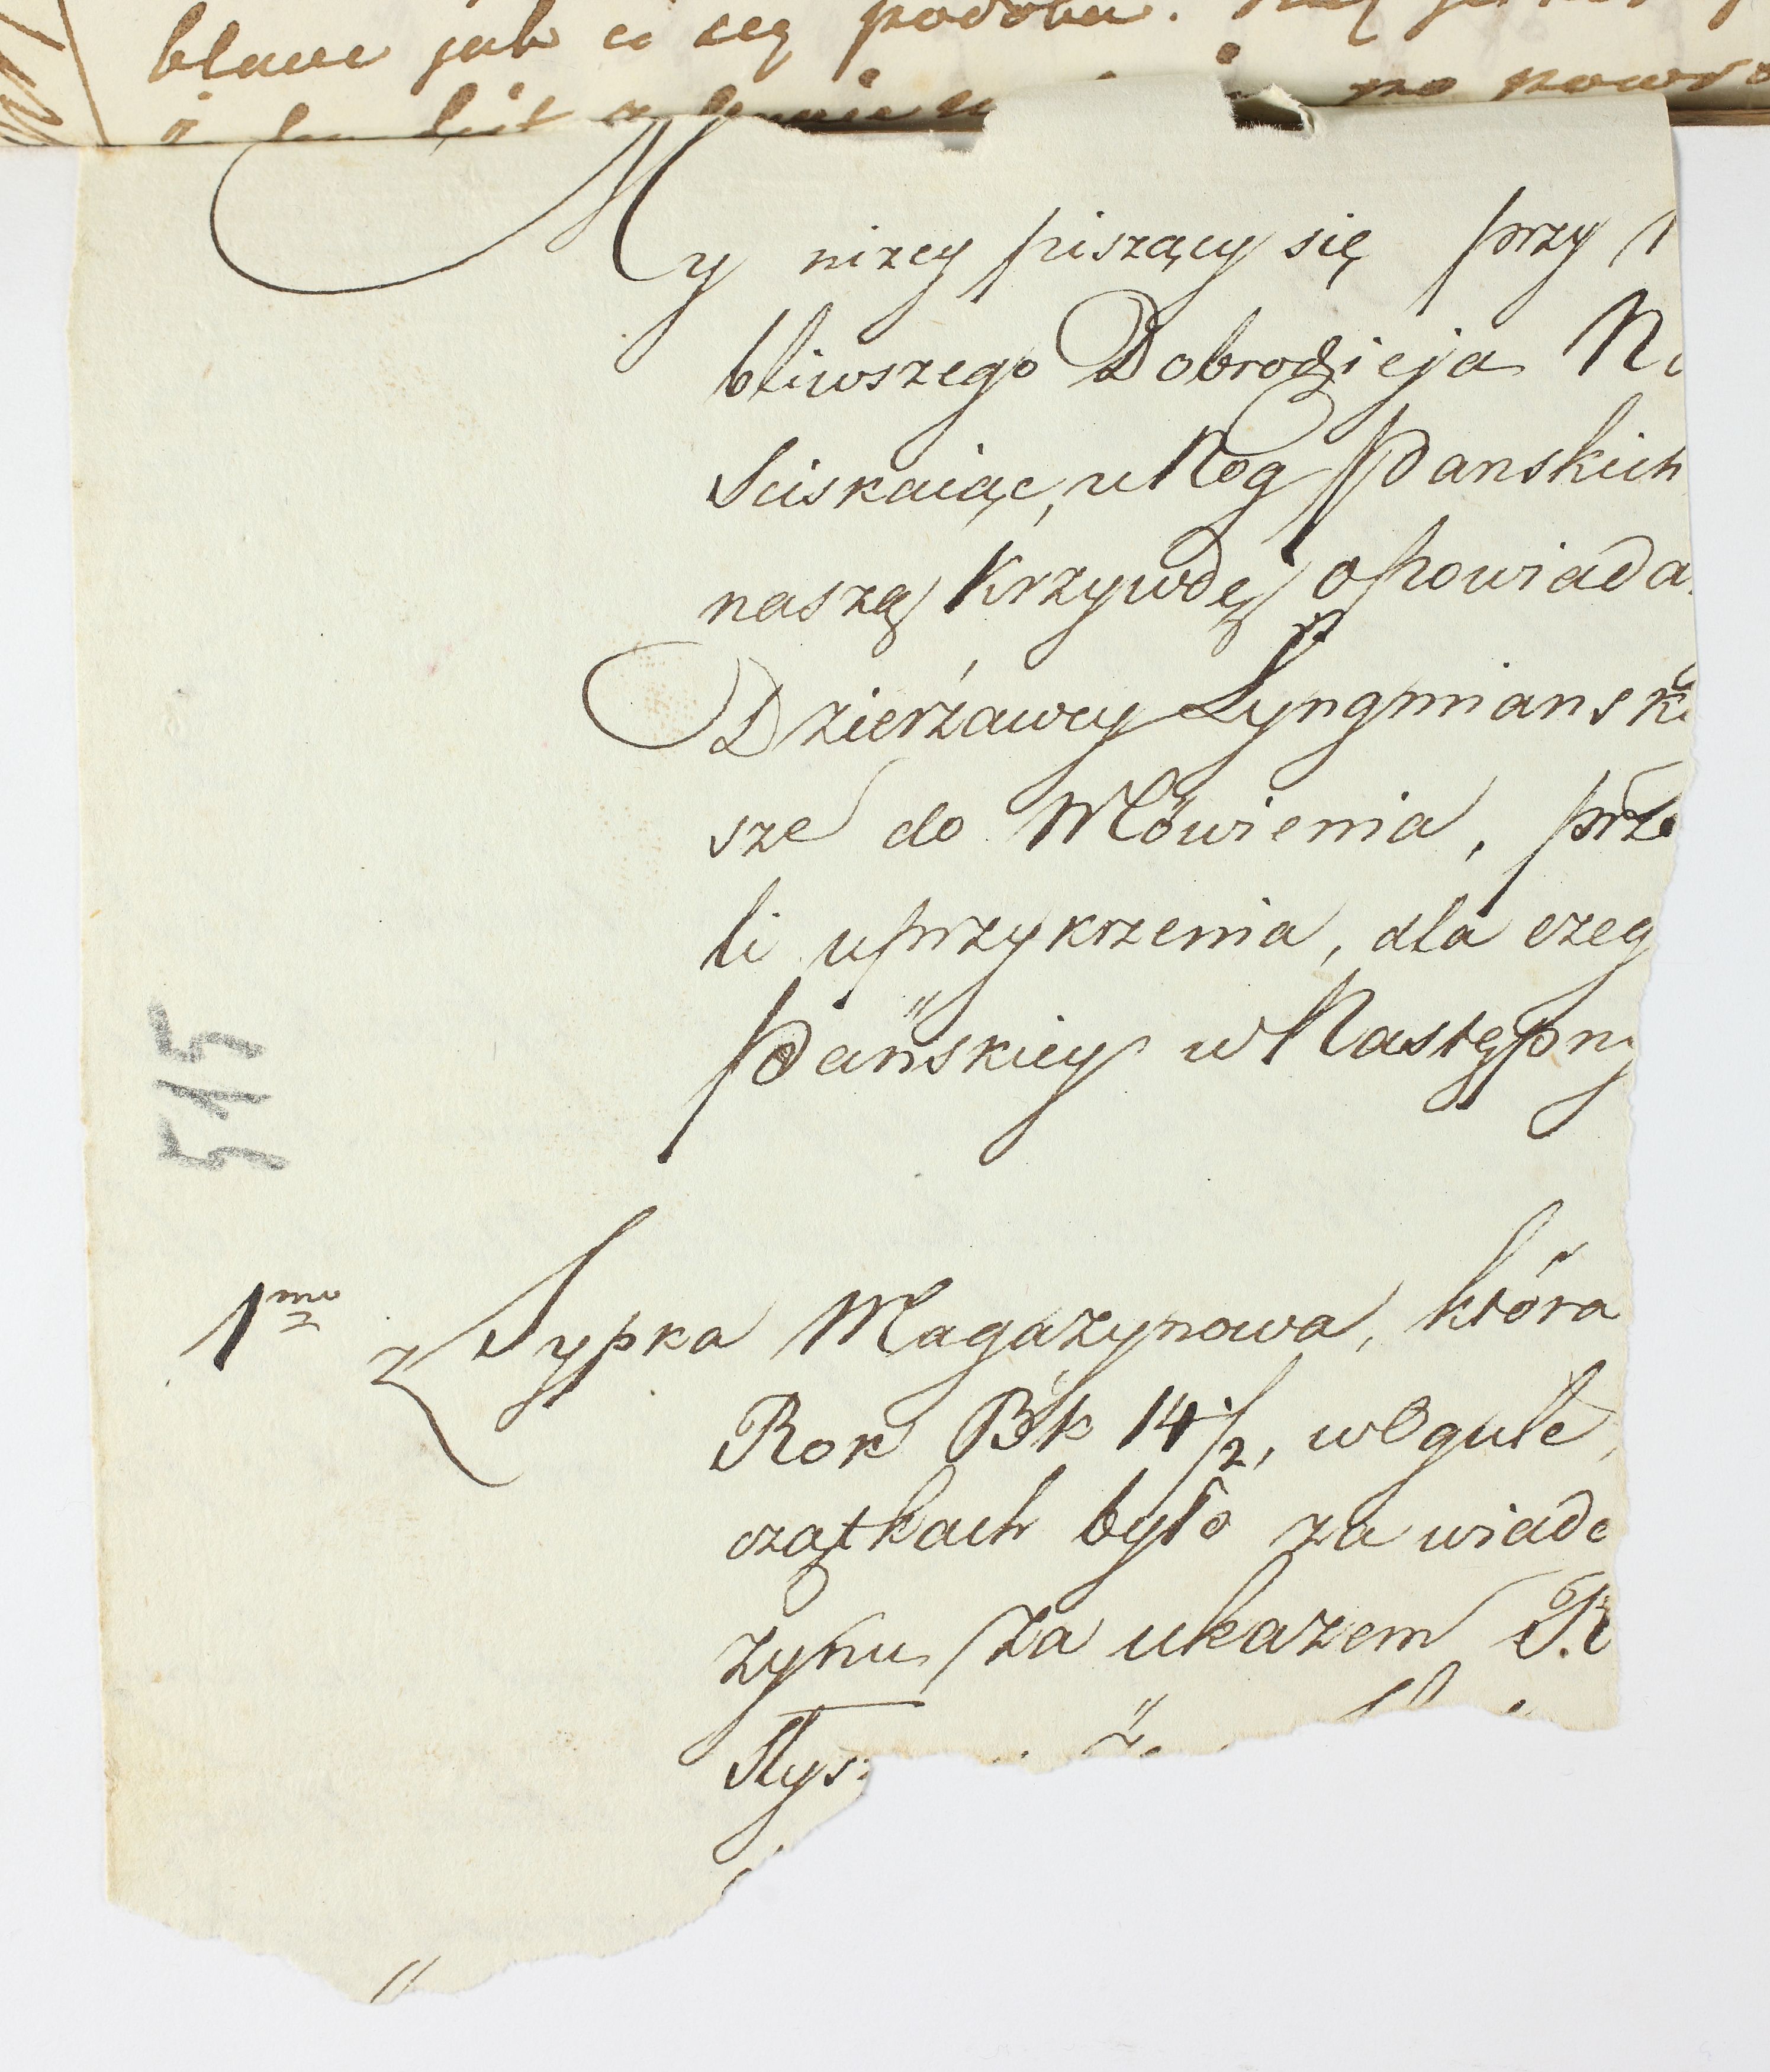 blawe jak ci się podoba.
po powro
My nizey piszący się przy
bliwszego Dobrodzieja
Sciskaiąc, u Nog Pańskich
naszą Krzywdę opowiada
Dzierżawcy Łyngmiansk
sze do Mówienia, prze
li uprzykrzenia, dla czeg
Pańskiey w Następny
515
1mo Sypka Magazynowa, która
Rok Bk 14 1/2, w Ogule
czątkach było za wiado
zynu za ukazem R
Słys